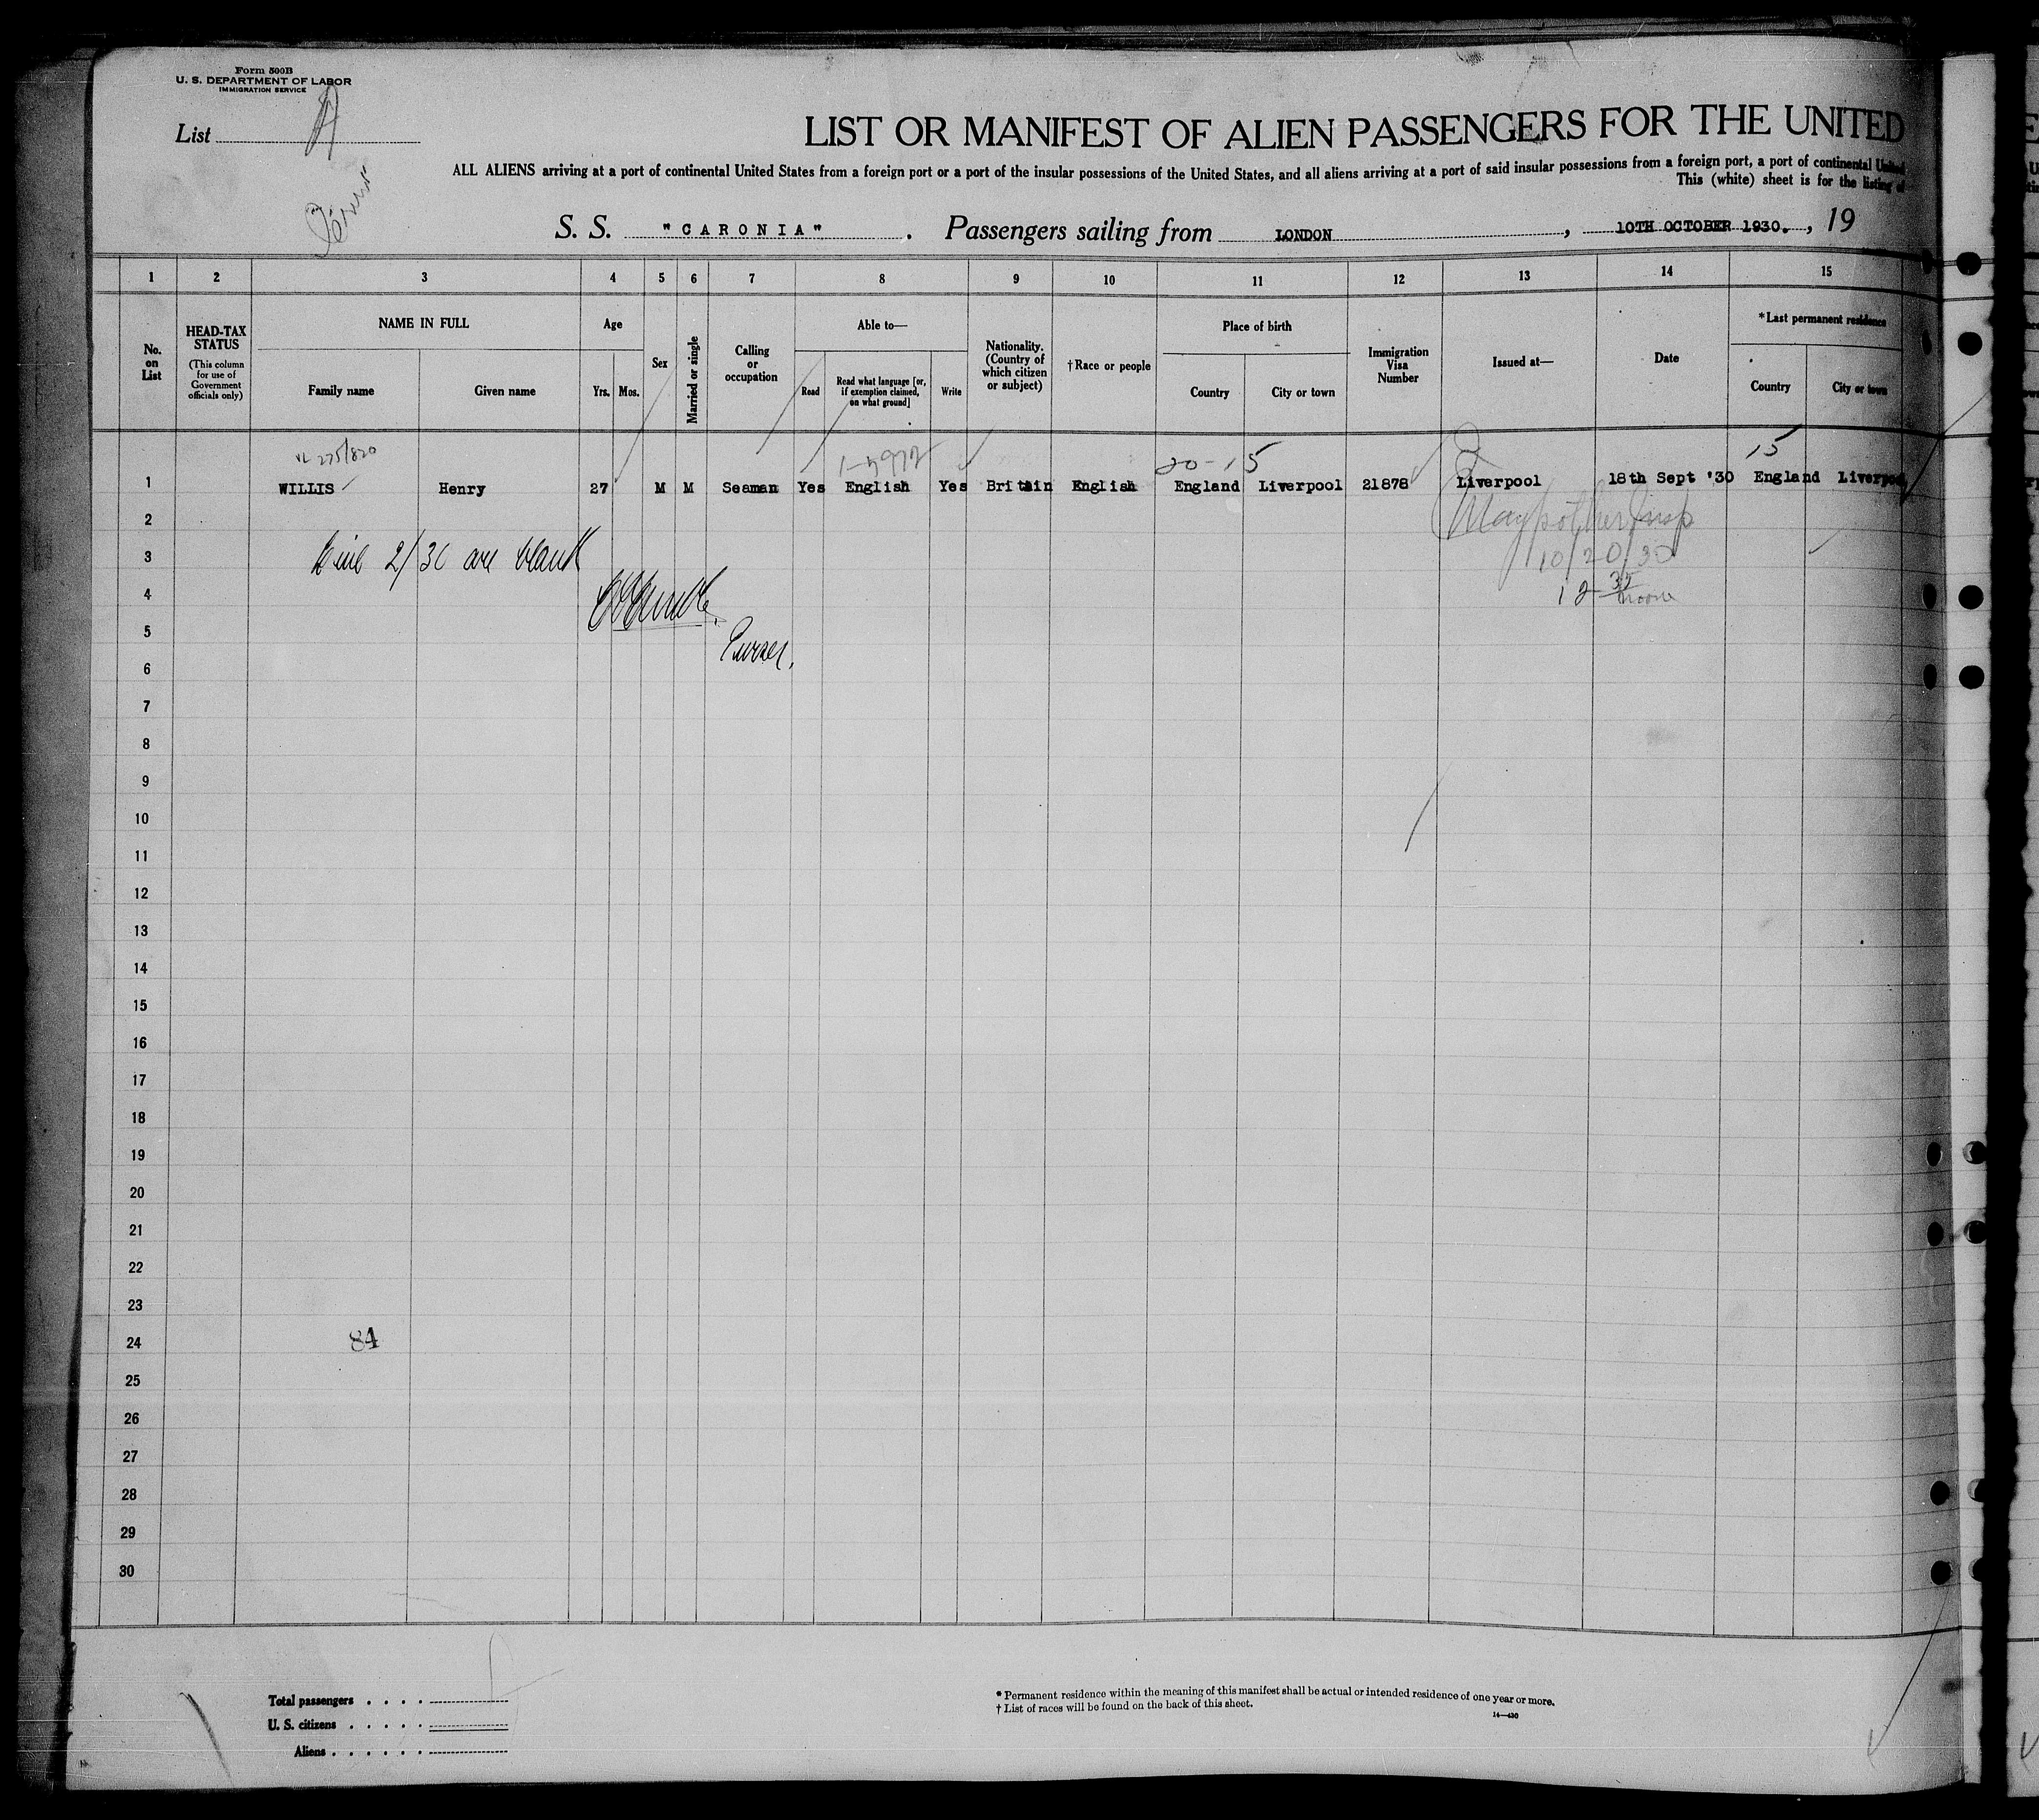 Form 500B
U. S. DEPARTMENT OF LABOR
IMMIGRATION SERVICE
List
LIST OR MANIFEST OF ALIEN PASSENGERS FOR THE UNITED
ALL ALIENS arriving at a port of continental United States from a foreign port or a port of the insular possessions of the United States, and all aliens arriving at a port of said insular possessions from a foreign port, a port of continental United
This (white) sheet is for the listing of
S. S. "CARONIA". Passengers sailing from LONDON, 10TH OCTOBER 1930., 19
1 2 3 4 5 6 7 8 9 10 11 12 13 14 15
No. on List
HEAD-TAX STATUS
(This column for use of Government officials only)
NAME IN FULL
Family name
Given name
Age
Yrs.
Mos.
Sex
Married or single
Calling or occupation
Able to—
Read
Read what language [or, if exemption claimed, on what ground]
Write
Nationality. (Country of which citizen or subject)
†Race or people
Place of birth
Country
City or town
Immigration Visa Number
Issued at—
Date
*Last permanent residence
Country
City or town
275/820
20-15
15
1 WILLIS Henry 27 M M Seaman Yes English Yes Britain English England Liverpool 21878 Liverpool 18th Sept '30 England Liverpool
2
3 2/30 are blank
10/20/30
4
12 35
5
Purser.
6
7
8
9
10
11
12
13
14
15
16
17
18
19
20
21
22
23
24
84
25
26
27
28
29
30
Total passengers . . . .
U. S. citizens . . . . .
Aliens . . . . . .
* Permanent residence within the meaning of this manifest shall be actual or intended residence of one year or more.
† List of races will be found on the back of this sheet.